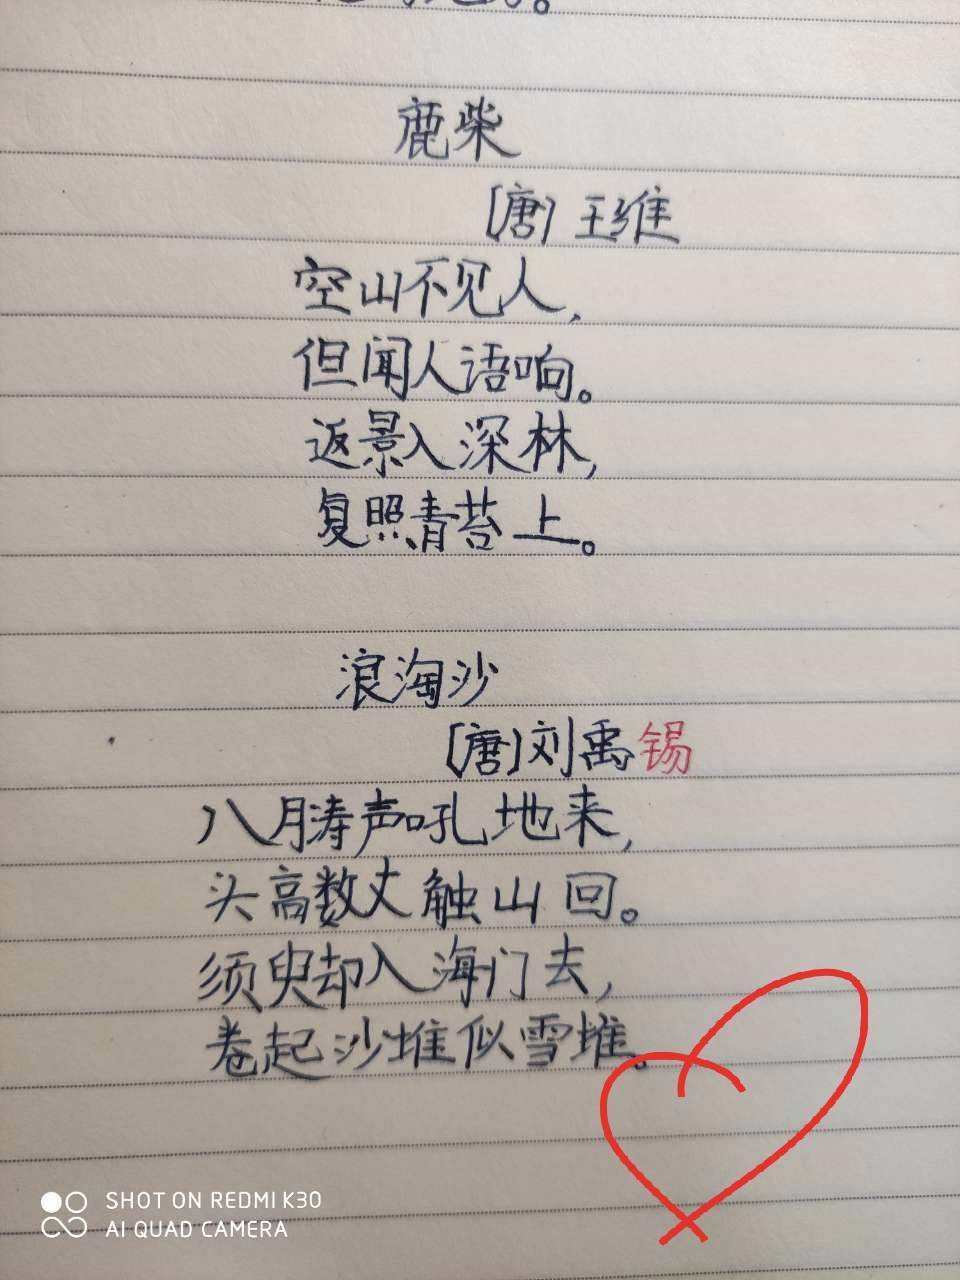 鹿柴
[唐] 王维
空山不见人,
但闻人语响。
返景入深林,
复照青苔上。
浪淘沙
[唐] 刘禹锡
八月涛声吼地来,
头高数丈触山回。
须臾却入海门去,
卷起沙堆似雪堆。
SHOT ON REDMI K30
AI QUAD CAMERA